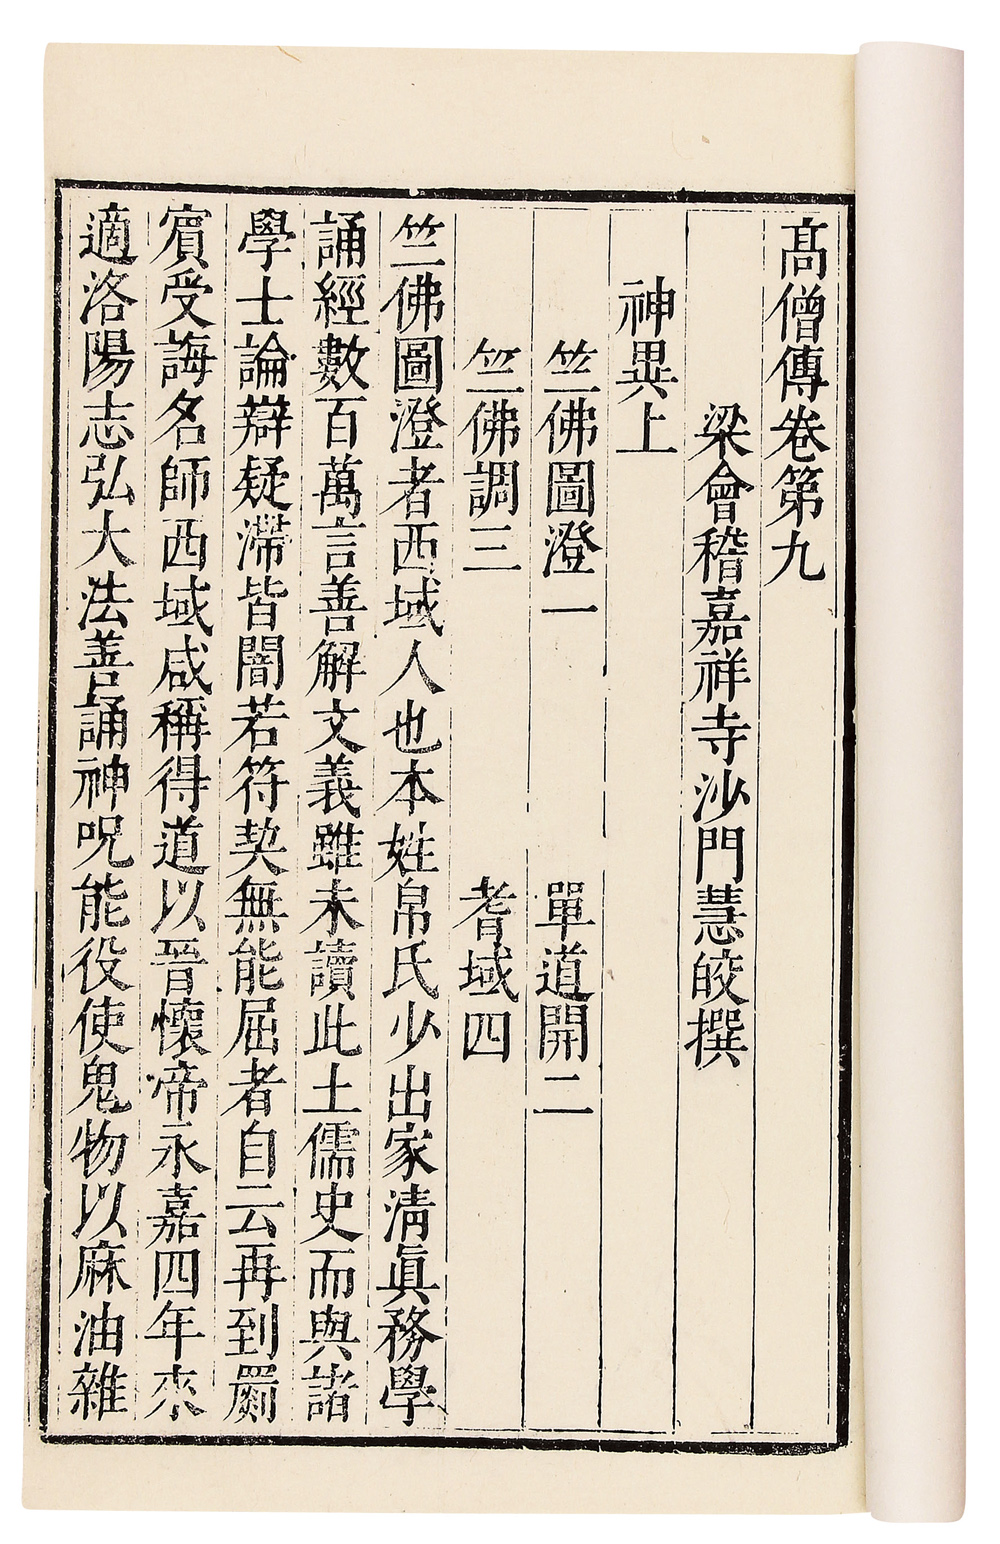 髙僧傳卷第九
梁會稽嘉祥寺沙門慧皎撰
神異上
竺佛圖澄一　單道開二
竺佛調三　耆域四
竺佛圖澄者西域人也本姓帛氏少出家清眞務學
誦經數百萬言善解文義雖未讀此土儒史而與諸
學士論辯疑滯皆闇若符契無能屈者自云再到罽
賓受誨名師西域咸稱得道以晉懷帝永嘉四年來
適洛陽志弘大法善誦神呪能役使鬼物以麻油雜